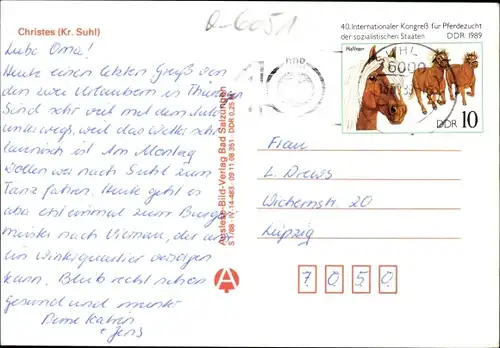 Christes (Kr. Suhl)
Q-6051
Liebe Oma!
Heute einen letzten Gruß von
den zwei Urlaubern in Thüringen
Sind sehr viel mit dem Auto
unterwegs, weil das Wetter sehr
launisch ist. Am Montag
wollen wir nach Suhl zum
Tanz fahren. Heute geht es
aber erst einmal zum
nach Viernau, der
ein Winterquartier
kann. Bleib recht schön
gesund und munter
Deine Katrin
+ Jens
Auslese-Bild-Verlag Bad Salzungen
S 1/88 · IV-14-483 · 09 11 08 351 · DDR 0,25 M
A
40. Internationaler Kongreß für Pferdezucht
der sozialistischen Staaten DDR 1989
Haflinger
DDR 10
SUHL
6000
Frau
L. Drews
Wichernstr. 20
Leipzig
7050